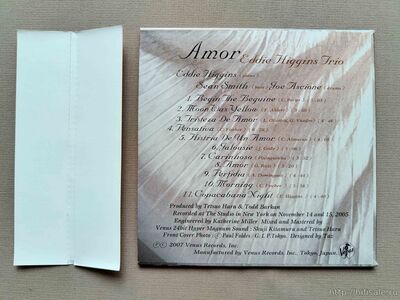 Amor Eddie Higgins Trio
Eddie Higgins (piano)
Sean Smith (bass) Joe Ascione (drums)
1. Begin The Beguine
2. Moon Was Yellow
3. Tristeza De Amor
4. Pensativa
5. Histria De Un Amor
6. Jalousie
7. Carinhoso
8. Amor
9. Perfidia
10. Morning
11. Copacabana Night
Produced by Tetsuo Hara & Todd Barkan
Recorded at The Studio in New York on November 14 and 15, 2005
Engineered by Katherine Miller, Mixed and Mastered by
Venus 24bit Hyper Magnum Sound : Shuji Kitamura and Tetsuo Hara
Front Cover Photo : © Paul Foldes / G. I. P.Tokyo. Designed by Taz
© 2007 Venus Records, Inc.
Manufactured by Venus Records, Inc., Tokyo, Japan.
Venus